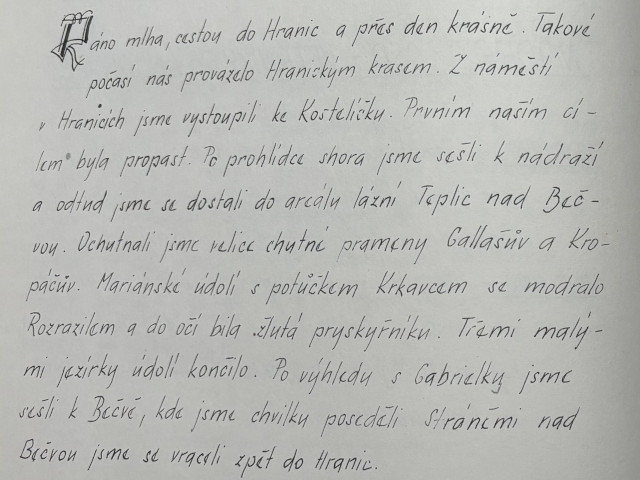 Ráno mlha, cestou do Hranic a přes den krásně. Takové
počasí nás provázelo Hranickým krasem. Z náměstí
v Hranicích jsme vystoupili ke Kostelíčku. Prvním naším cí-
lem byla propast. Po prohlídce shora jsme sešli k nádraží
a odtud jsme se dostali do areálu lázní Teplic nad Beč-
vou. Ochutnali jsme velice chutné prameny Gallašův a Kro-
páčův. Mariánské údolí s potůčkem Krkavcem se modralo
Rozrazilem a do očí bila žlutá pryskyřníku. Třemi malý-
mi jezírky údolí končilo. Po výhledu s Gabrielky jsme
sešli k Bečvě, kde jsme chvilku poseděli Stráněmi nad
Bečvou jsme se vraceli zpět do Hranic.